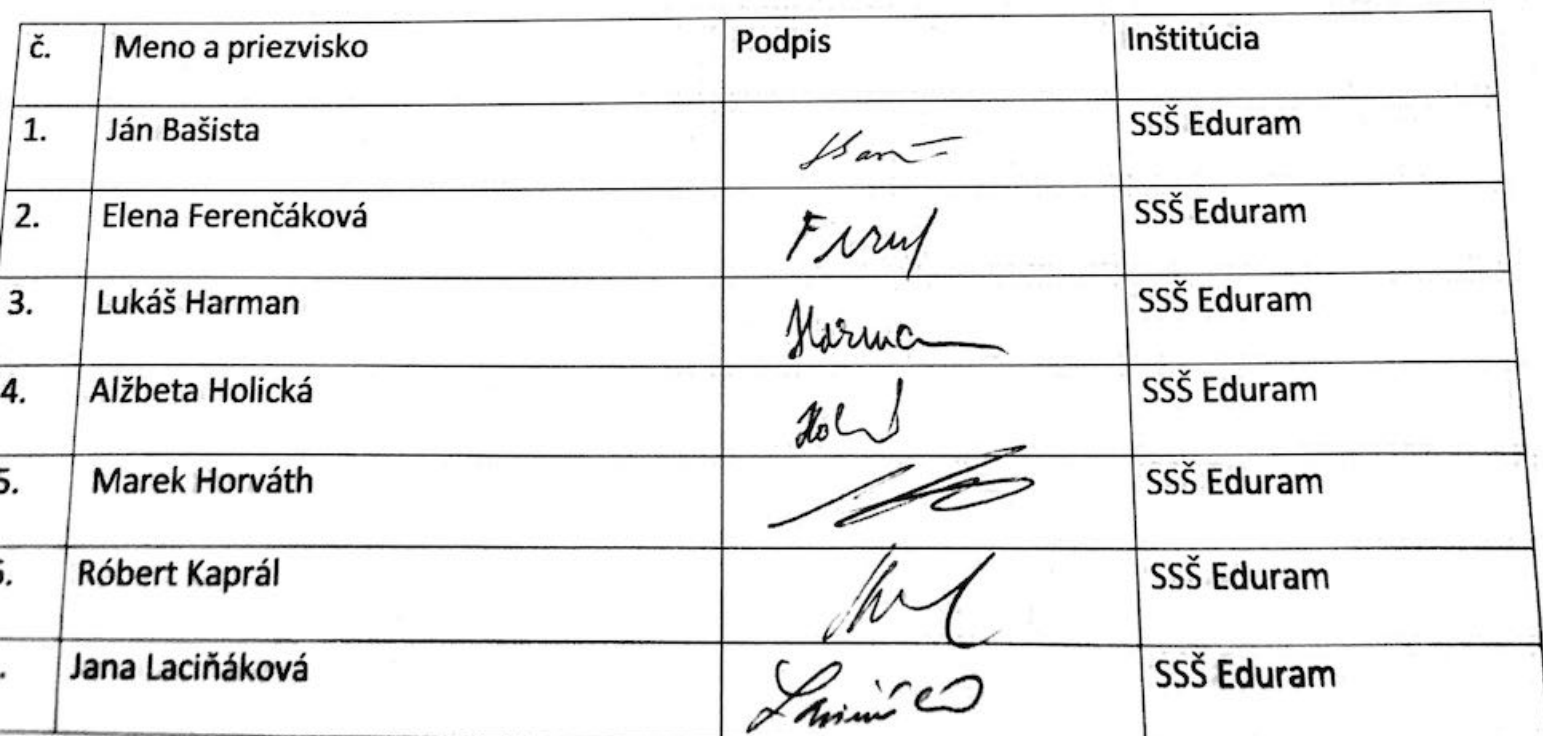 č. Meno a priezvisko Podpis Inštitúcia
1. Ján Bašista SSŠ Eduram
2. Elena Ferenčáková SSŠ Eduram
3. Lukáš Harman Harman SSŠ Eduram
4. Alžbeta Holická SSŠ Eduram
5. Marek Horváth SSŠ Eduram
Róbert Kaprál SSŠ Eduram
Jana Laciňáková SSŠ Eduram